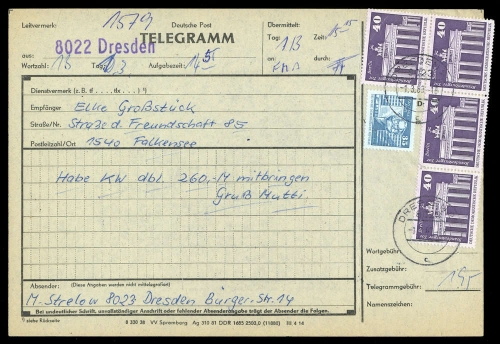 Leitvermerk:
1579
Deutsche Post
TELEGRAMM
Übermittelt:
Tag: 1/3
Zeit:
an:
durch:
aus: 8022 Dresden
Wortzahl: 13
Tag: 1.3
Aufgabezeit:
Dienstvermerk (z.B.
Empfänger Elke Großstück
Straße/Nr. Straße d. Freundschaft 85
Postleitzahl/Ort 1540 Falkensee
Habe KW dbl. 260,-M mitbringen
Gruß Mutti
Absender: (Diese Angaben werden nicht mittelegrafiert)
M. Strelow 8023 Dresden Burger-Str. 14
Bei undeutlicher Schrift, unvollständiger Anschrift oder fehlender Absenderangabe trägt der Absender die Folgen.
siehe Rückseite
VV Spremberg Ag 310 31 DDR
40
40
40
40
DRESDEN
Wortgebühr:
Zusatzgebühr:
Telegrammgebühr: 195
Namenszeichen: